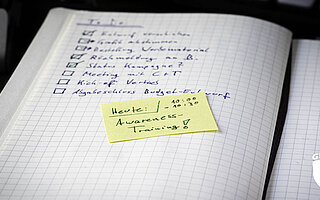 To do
Entwurf verschicken
Grafik abstimmen
Bestellung Werbematerial
Rückmeldung an B.
Status Kampagne?
Meeting mit C+T
Kick-off Vertrieb
Abgabeschluss Budget-Entwurf
Heute: 10:00
- 10:30
Awareness-
Training!